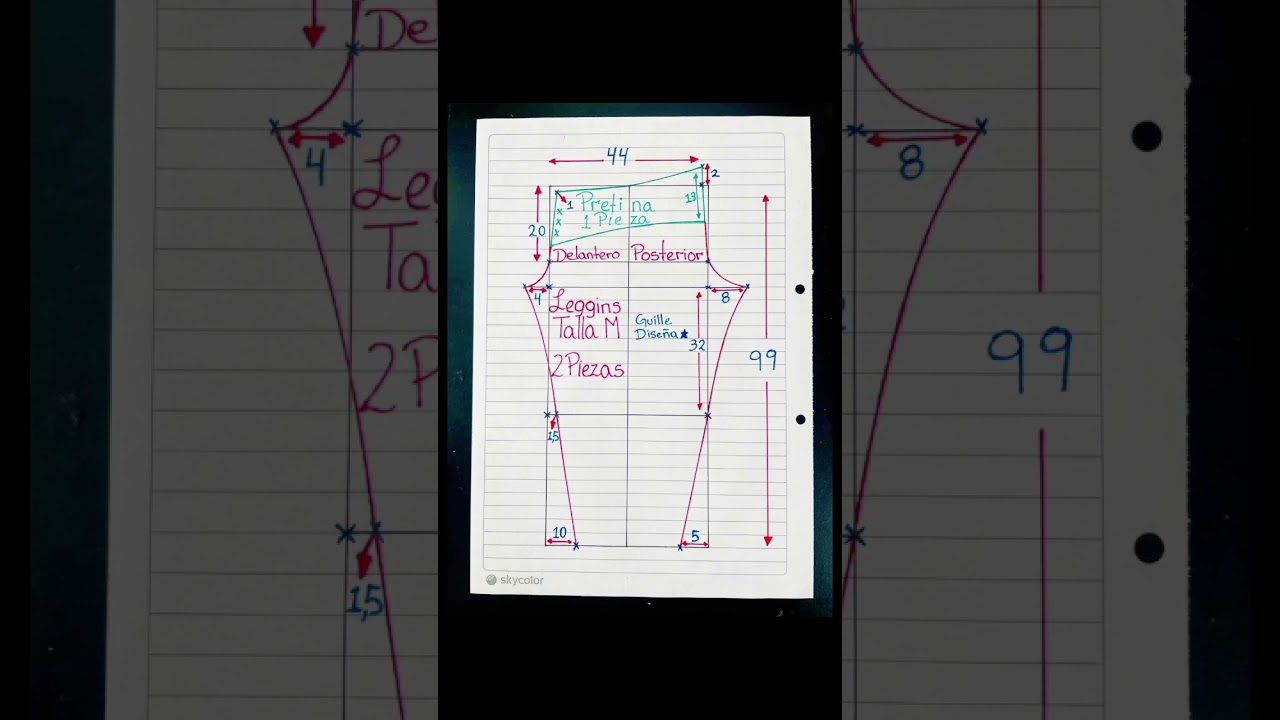 44
2
1 Pretina 13
1 Pieza
20
Delantero Posterior
4 8
Leggins
Talla M
Guille
Diseña
32
99
2 Piezas
1,5
10 5
skycolor
De
4
Leg
Ta
2P
1,5
8
99